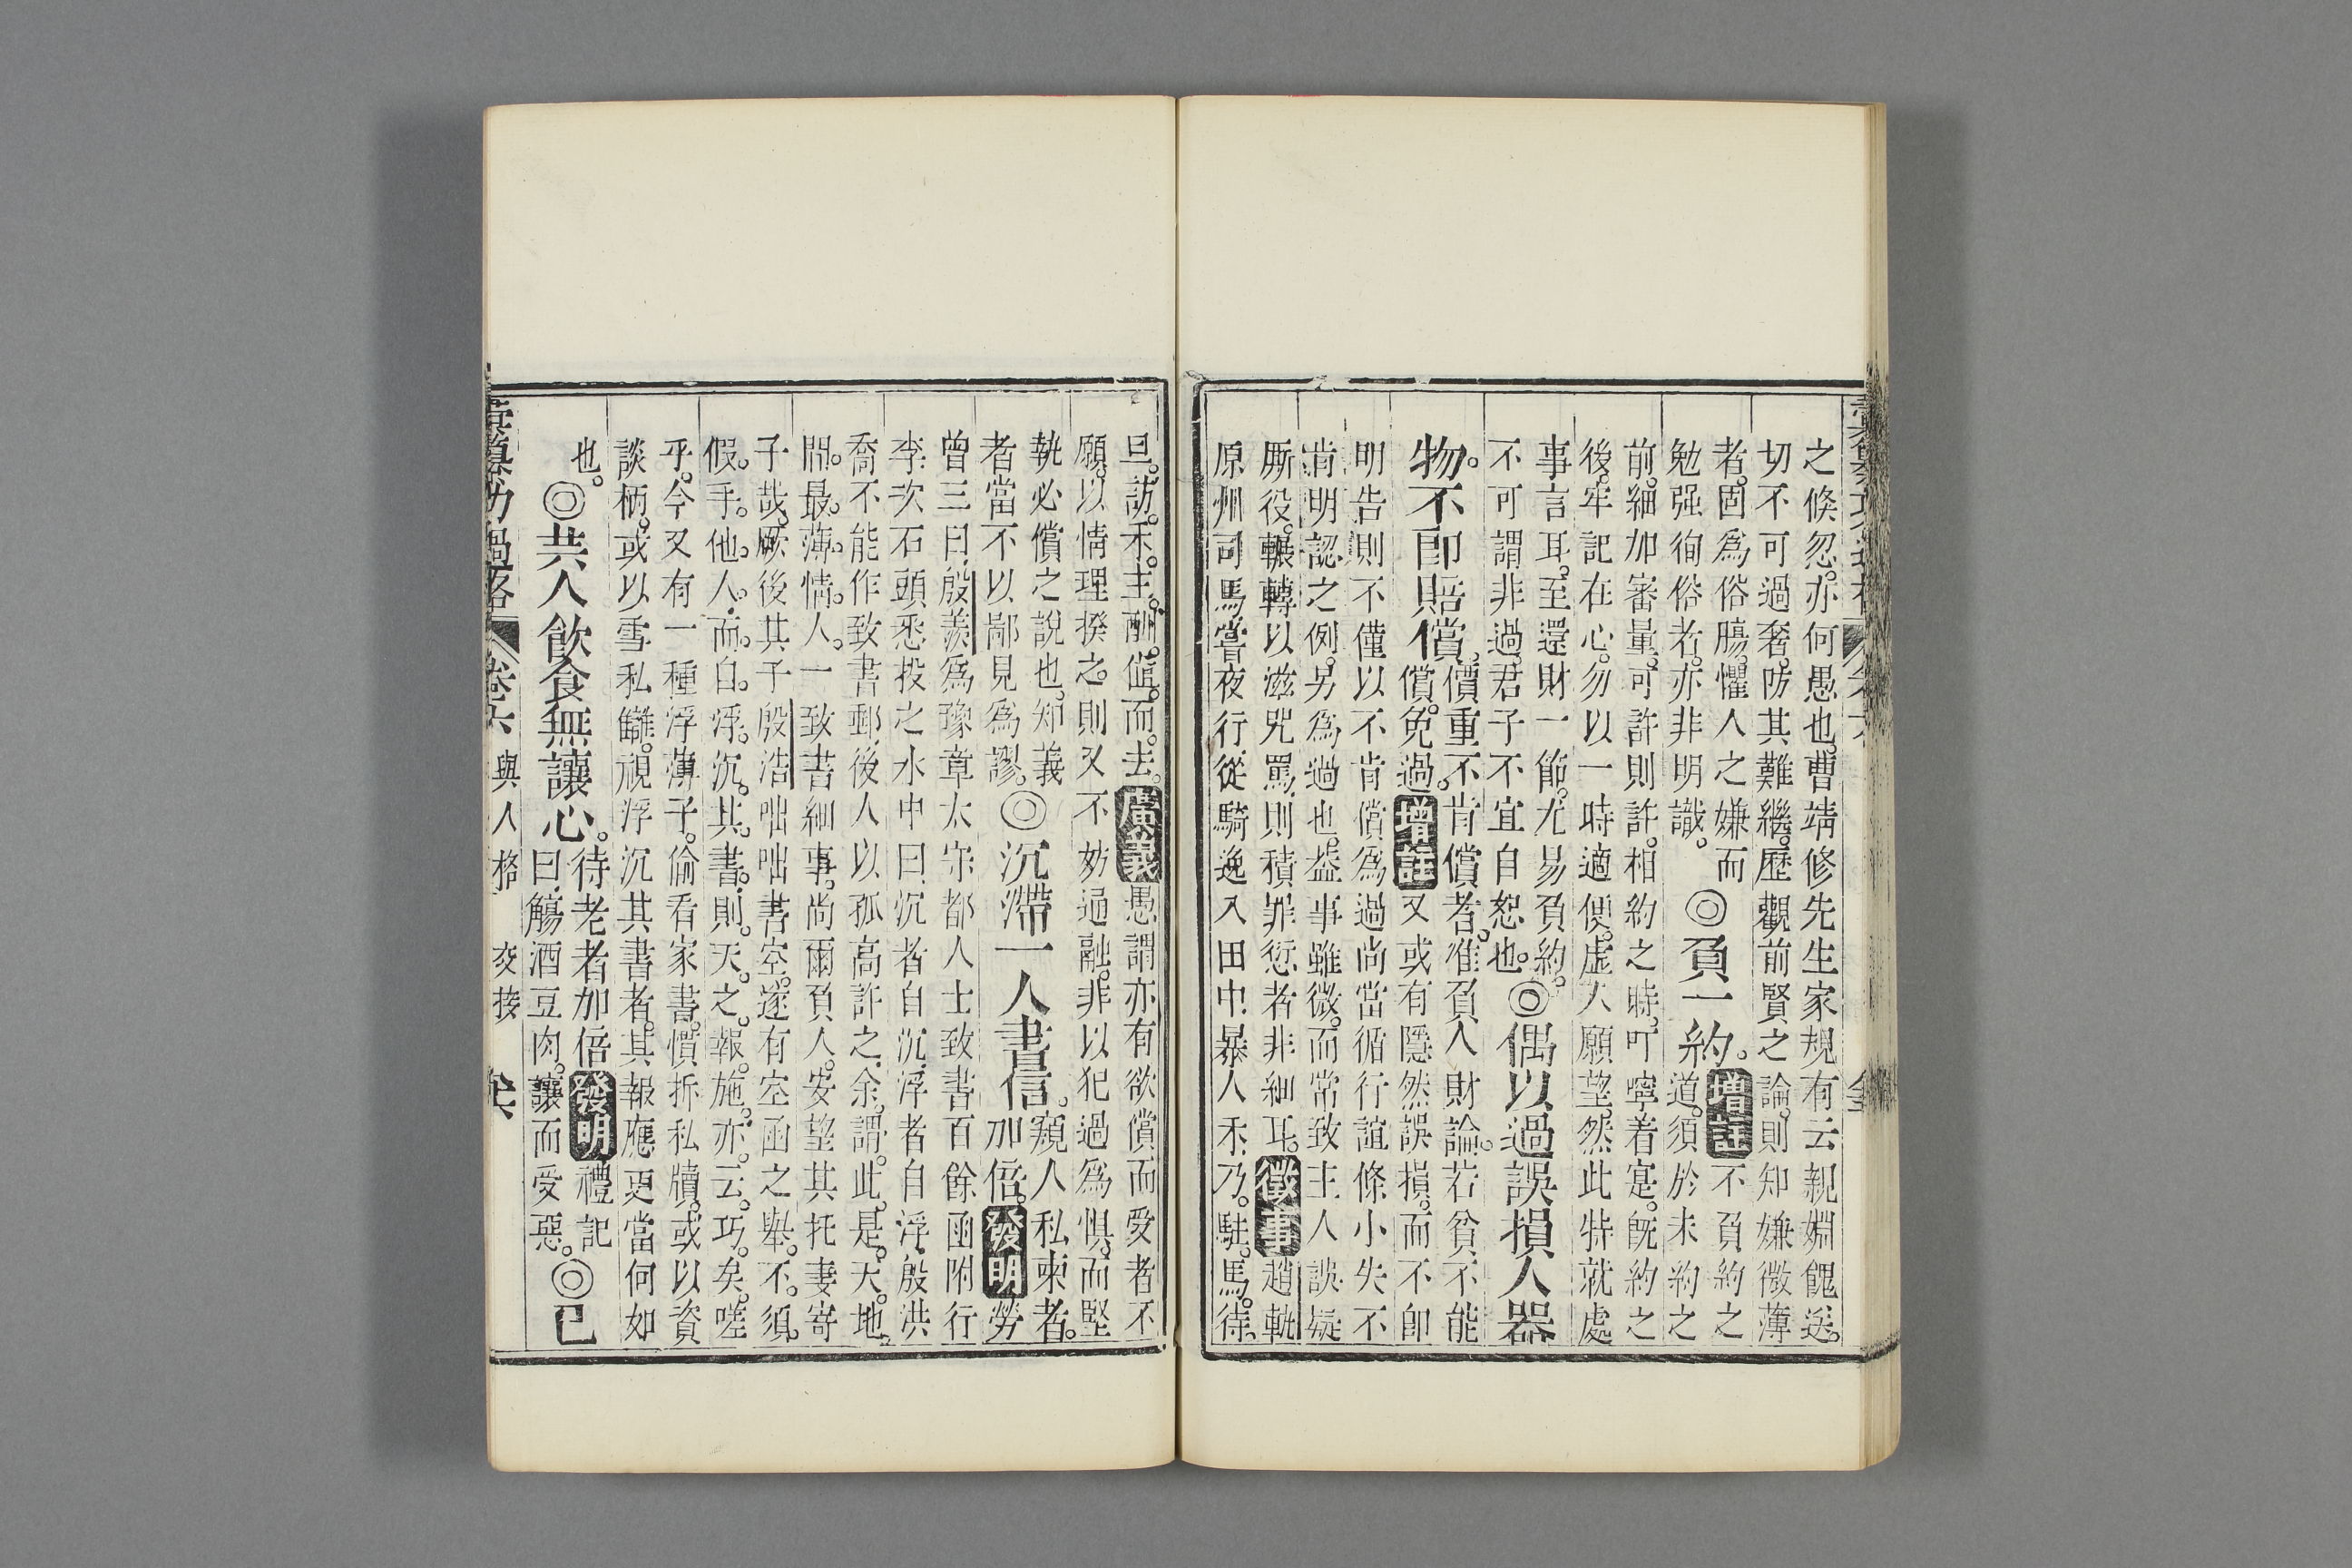 之倏忽亦何愚也曹靖修先生家規有云親婣餽送
切不可過奢防其難繼歷觀前賢之論則知嫌微薄
者固爲俗膓懼人之嫌而
勉强徇俗者亦非明識
◎負一約
增註不負約之
道須於未約之
前細加審量可許則許相約之時叮嚀着寔旣約之
後牢記在心勿以一時適便虛人願望然此特就處
事言耳至還財一節尤易負約
不可謂非過君子不宜自恕也
◎偶以過誤損人器
物不卽賠償
價重不肯償者准負人財論若貧不能
償免過增註又或有隱然誤損而不卽
明告則不僅以不肯償爲過尚當循行誼條小失不
肯明認之例另爲過也盖事雖微而常致主人誤疑
厮役輾轉以滋咒罵則積罪愆者非細耳徵事趙軌
原州司馬嘗夜行從騎逸入田中暴人禾乃駐馬待
旦訪禾主酬值而去廣義愚謂亦有欲償而受者不
願以情理揆之則又不妨通融非以犯過爲惧而堅
執必償之說也知義
者當不以鄙見爲謬
◎沉滯一人書信
窺人私柬者
加倍發明勞
曾三曰殷羨爲豫章太守都人士致書百餘函附行
李次石頭悉投之水中曰沉者自沉浮者自浮殷洪
喬不能作致書郵後人以孤高許之余謂此是天地
間最薄情人一致書細事尚爾負人安望其托妻寄
子哉厥後其子殷浩咄咄書空遂有空函之舉不須
假手他人而自浮沉其書則天之報施亦云巧矣嗟
乎今又有一種浮薄子偷看家書慣拆私牘或以資
談柄或以雪私讎視浮沉其書者其報應更當何如
也
◎共人飲食無讓心
待老者加倍發明禮記
曰觴酒豆肉讓而受惡
◎已
彚纂功過格 卷六 與人格 交接